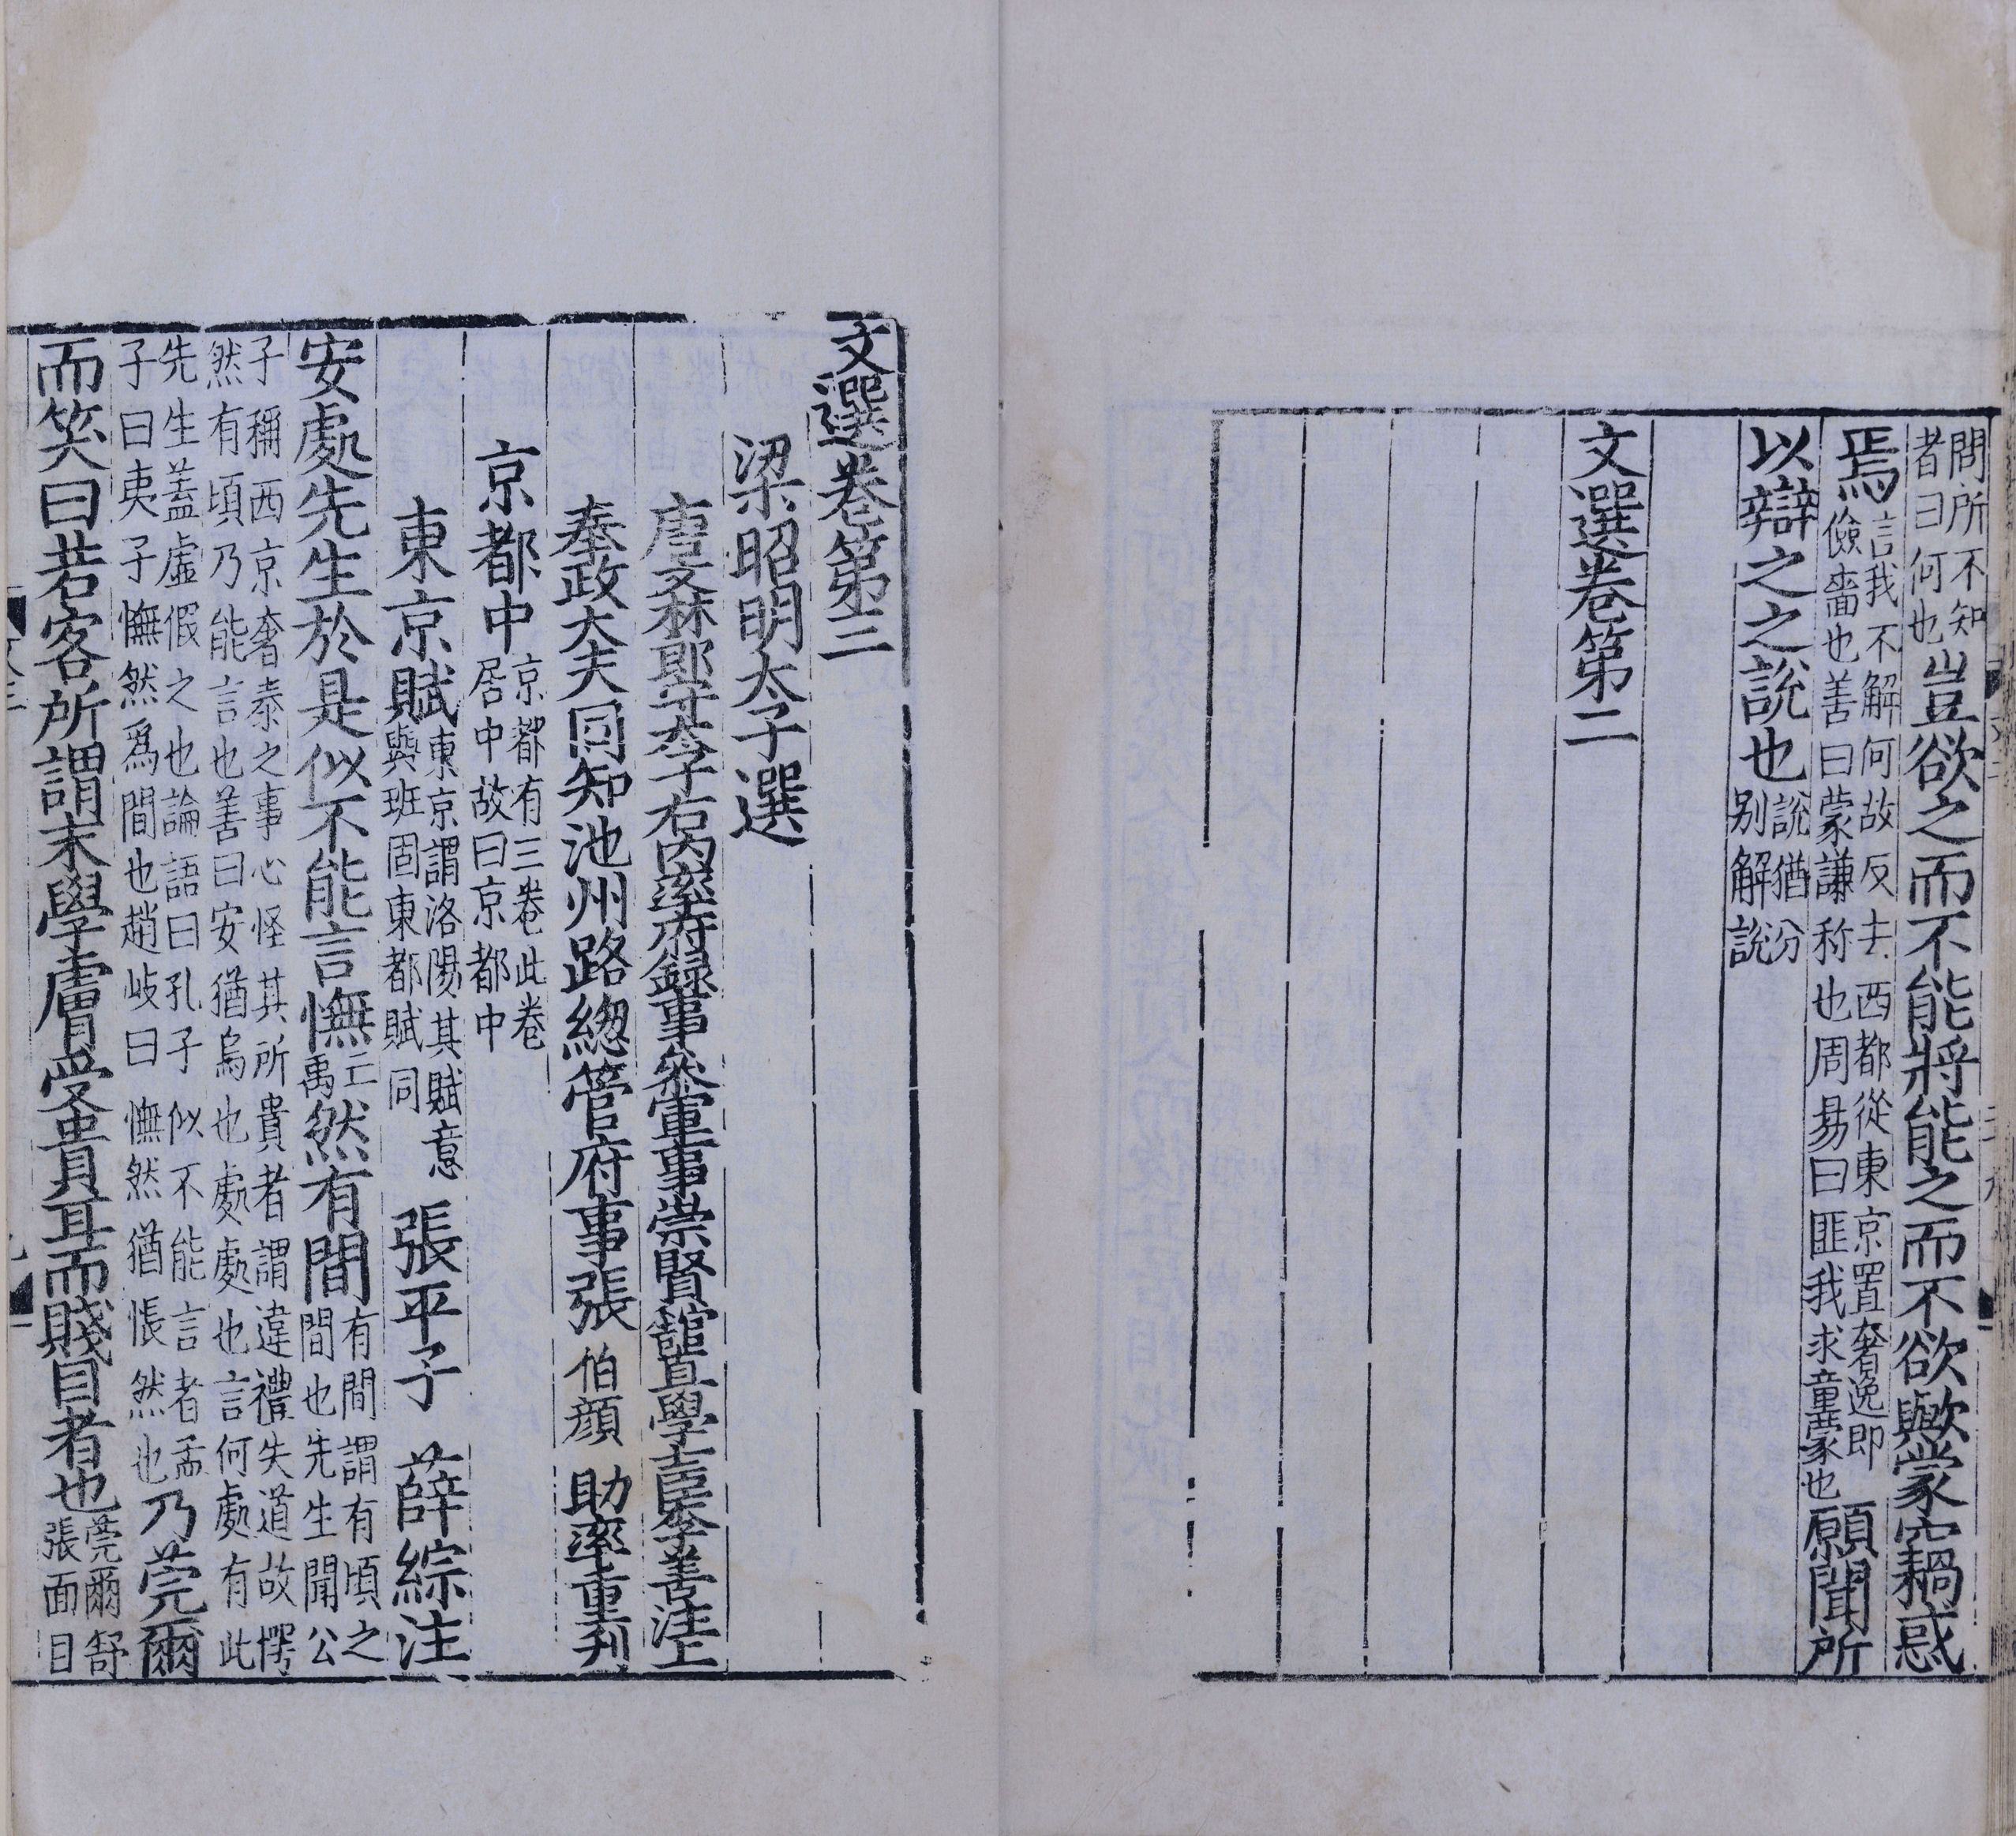 問所不知
者曰何也豈欲之而不能將能之而不欲歟蒙竊惑
焉言我不解何故反去西都從東京置奢逸即
儉嗇也善曰蒙謙称也周易曰匪我求童蒙也願聞所
以辯之之說也說猶分
別解說
文選卷第二
文選卷第三
梁昭明太子選
唐文林郎守太子右内率府録事参軍事崇賢館直學士臣李善注上
奉政大夫同知池州路緫管府事張伯顔助率重刋
京都中京都有三卷此卷
居中故曰京都中
東京賦東京謂洛陽其賦意
與班固東都賦同張平子薛綜注
安處先生於是似不能言憮亡
禹然有間有間謂有頃之
間也先生聞公
子稱西京奢泰之事心怪其所貴者謂違禮失道故愕
然有頃乃能言也善曰安猶烏也處處也言何處有此
先生蓋虛假之也論語曰孔子似不能言者孟
子曰夷子憮然爲間也趙岐曰憮然猶悵然也乃莞爾
而笑曰若客所謂末學膚受貴耳而賤目者也莞爾舒
張面目